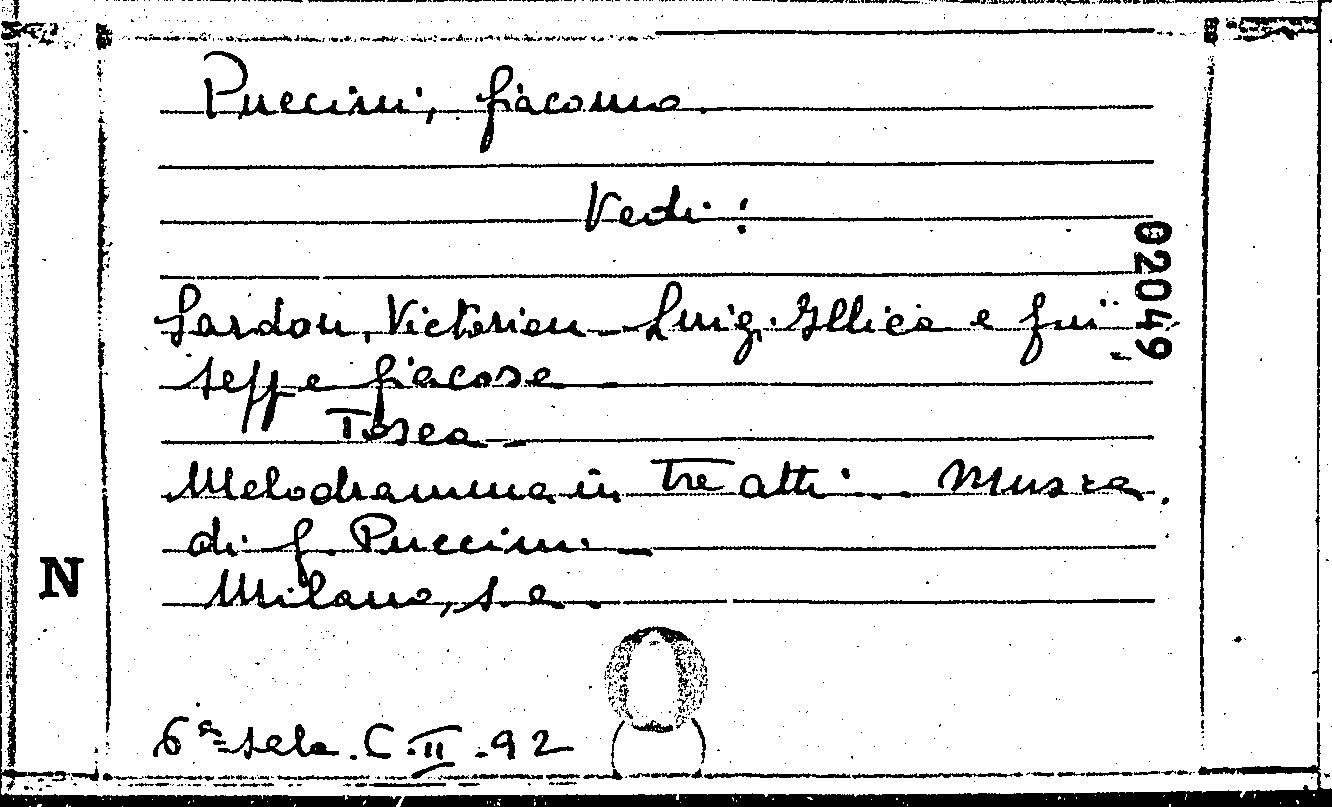 Puccini, Giacomo.
Vedi:
Sardou, Victorien - Luigi Illica e Giu-
seppe Giacosa
Tosca -
Melodramma in tre atti. Musica
di G. Puccini. -
Milano, s. a.
6ª sala. C. II. 92
02049
N